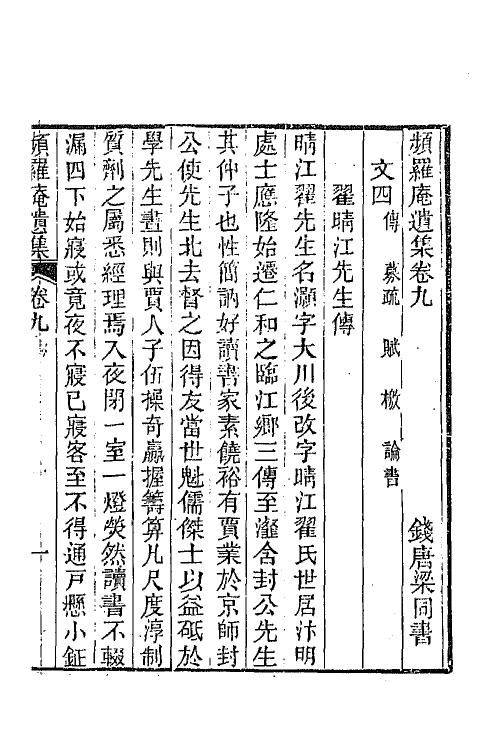 頻羅庵遺集卷九　錢唐梁同書
文四傳　募疏　賦　檄　論書
翟晴江先生傳
晴江翟先生名灝字大川後改字晴江翟氏世居汴明
處士應隆始遷仁和之臨江鄉三傳至瀣舍封公先生
其仲子也性簡訥好讀書家素饒裕有賈業於京師封
公使先生北去督之因得友當世魁儒傑士以益砥於
學先生晝則與賈人子伍操奇贏握籌算凡尺度淳制
質劑之屬悉經理焉入夜閉一室一燈熒然讀書不輟
漏四下始寢或竟夜不寢已寢客至不得通戸懸小鉦
頻羅庵遺集　卷九　一